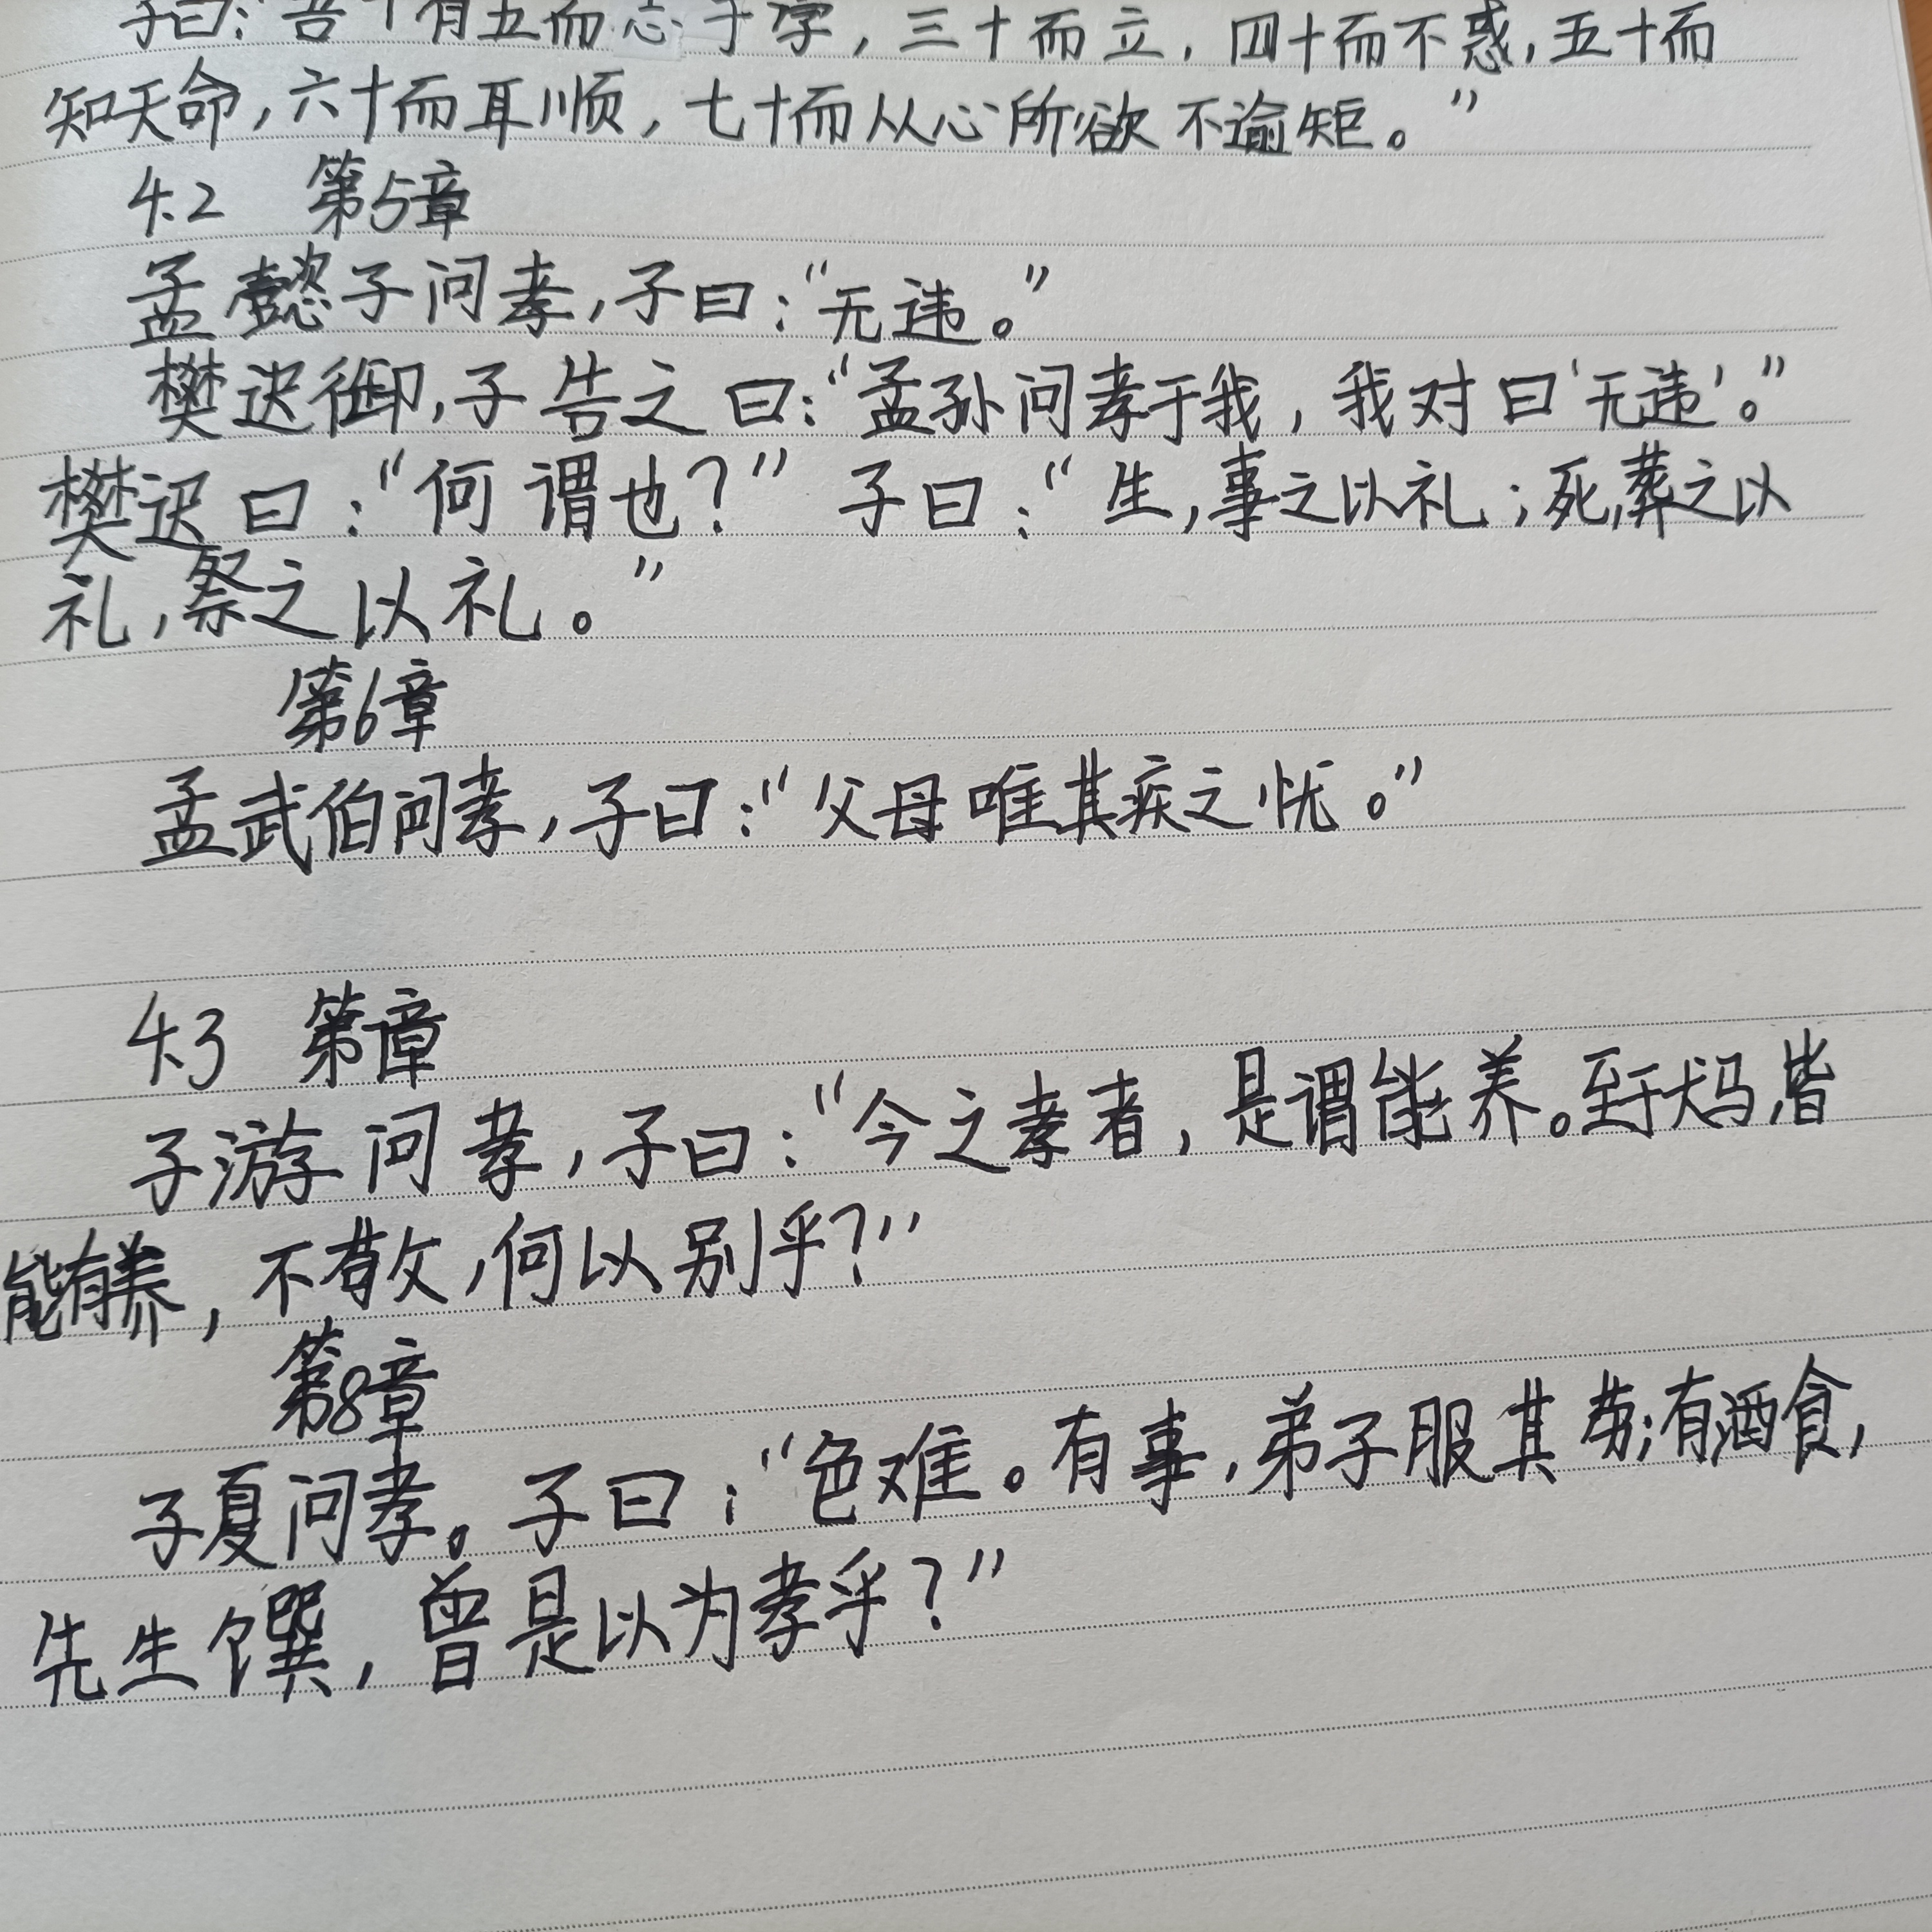 子曰：“吾十有五而志于学，三十而立，四十而不惑，五十而
知天命，六十而耳顺，七十而从心所欲不逾矩。”
4.2 第5章
孟懿子问孝，子曰：“无违。”
樊迟御，子告之曰：“孟孙问孝于我，我对曰‘无违’。”
樊迟曰：“何谓也？”子曰：“生，事之以礼；死，葬之以
礼，祭之以礼。”
第6章
孟武伯问孝，子曰：“父母唯其疾之忧。”
4.3 第章
子游问孝，子曰：“今之孝者，是谓能养。至于犬马，皆
能有养，不敬，何以别乎？”
第8章
子夏问孝。子曰：“色难。有事，弟子服其劳；有酒食，
先生馔，曾是以为孝乎？”